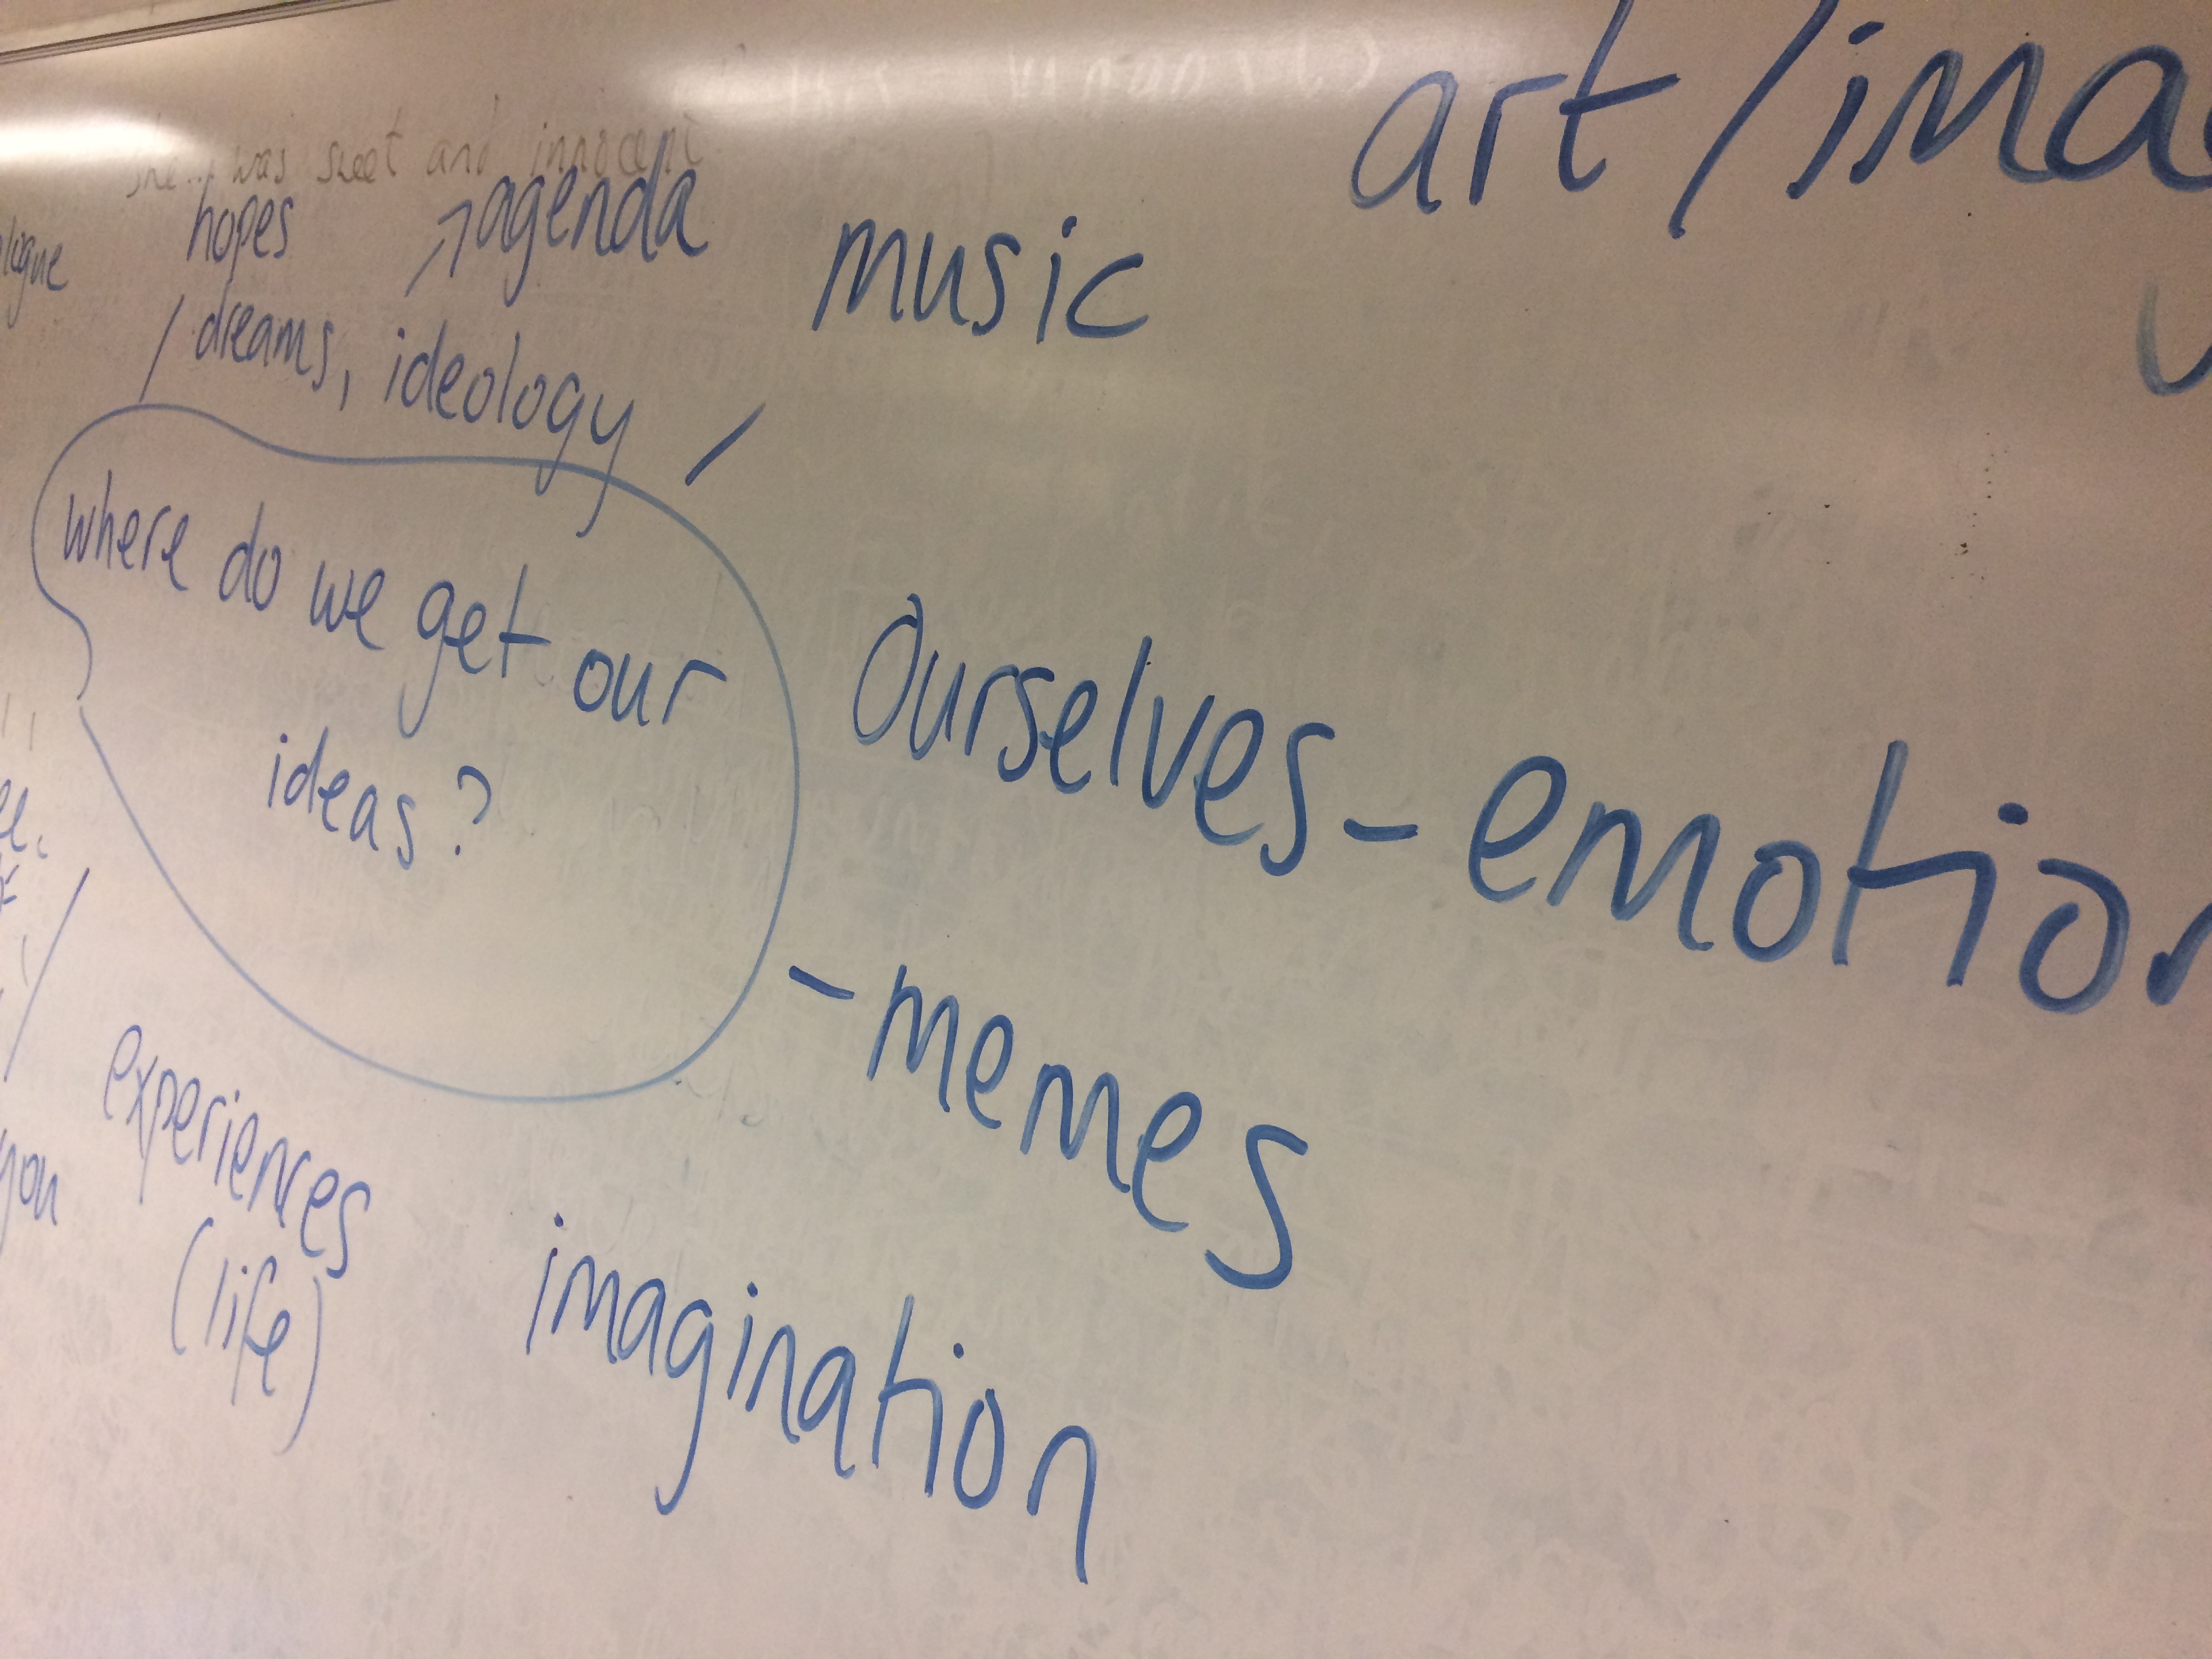 she... was sweet and innocent
hopes
agenda
music
art/imag
logue
dreams, ideology
where do we get our
ideas?
Ourselves - emotion
- memes
experiences
(life)
you
imagination